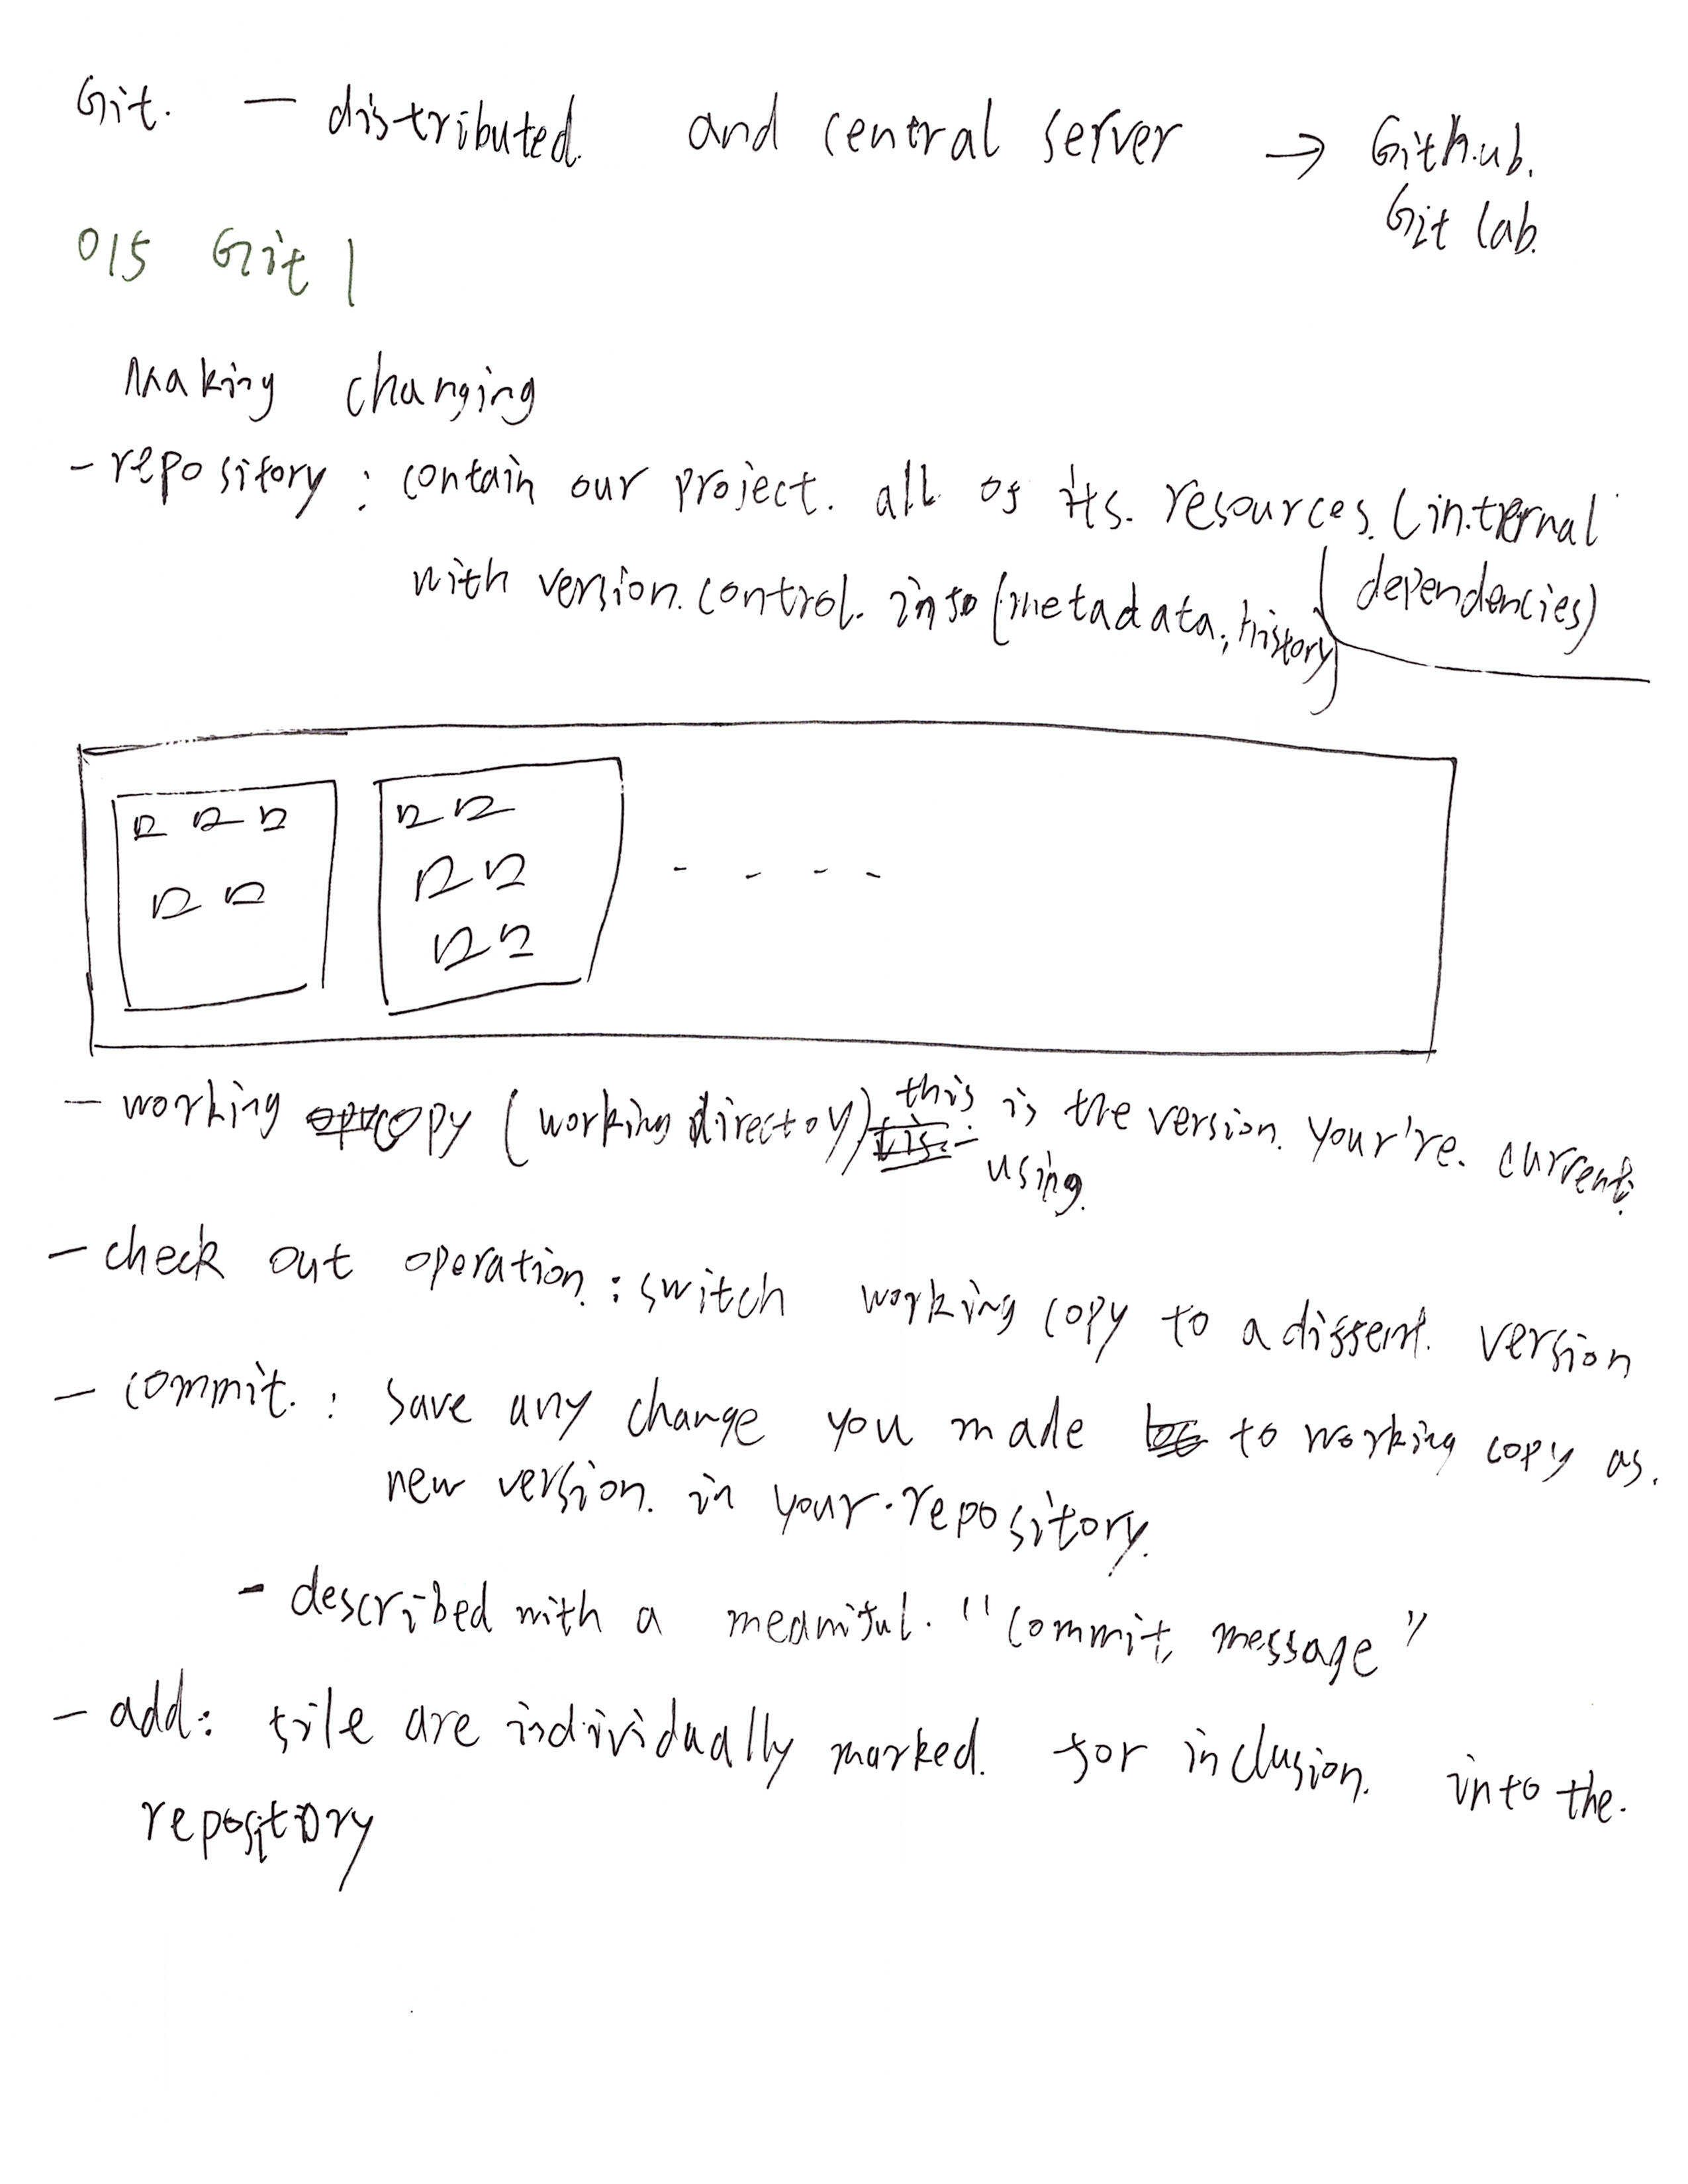 Git. — distributed. and central server → Github.
Git lab.
015 Git 1
Making changing
- repository : contain our project. all of its. resources. (internal
dependencies)
with version. control. info (metadata, history)
- working copy (working directoy) this is the version. your're. current.
using.
- check out operation. : switch working copy to a diffent. version
- commit. : save any change you made to working copy as.
new version. in your. repository.
- described with a meaniful. "commit message"
- add: file are individually marked. for inclusion. into the.
repository